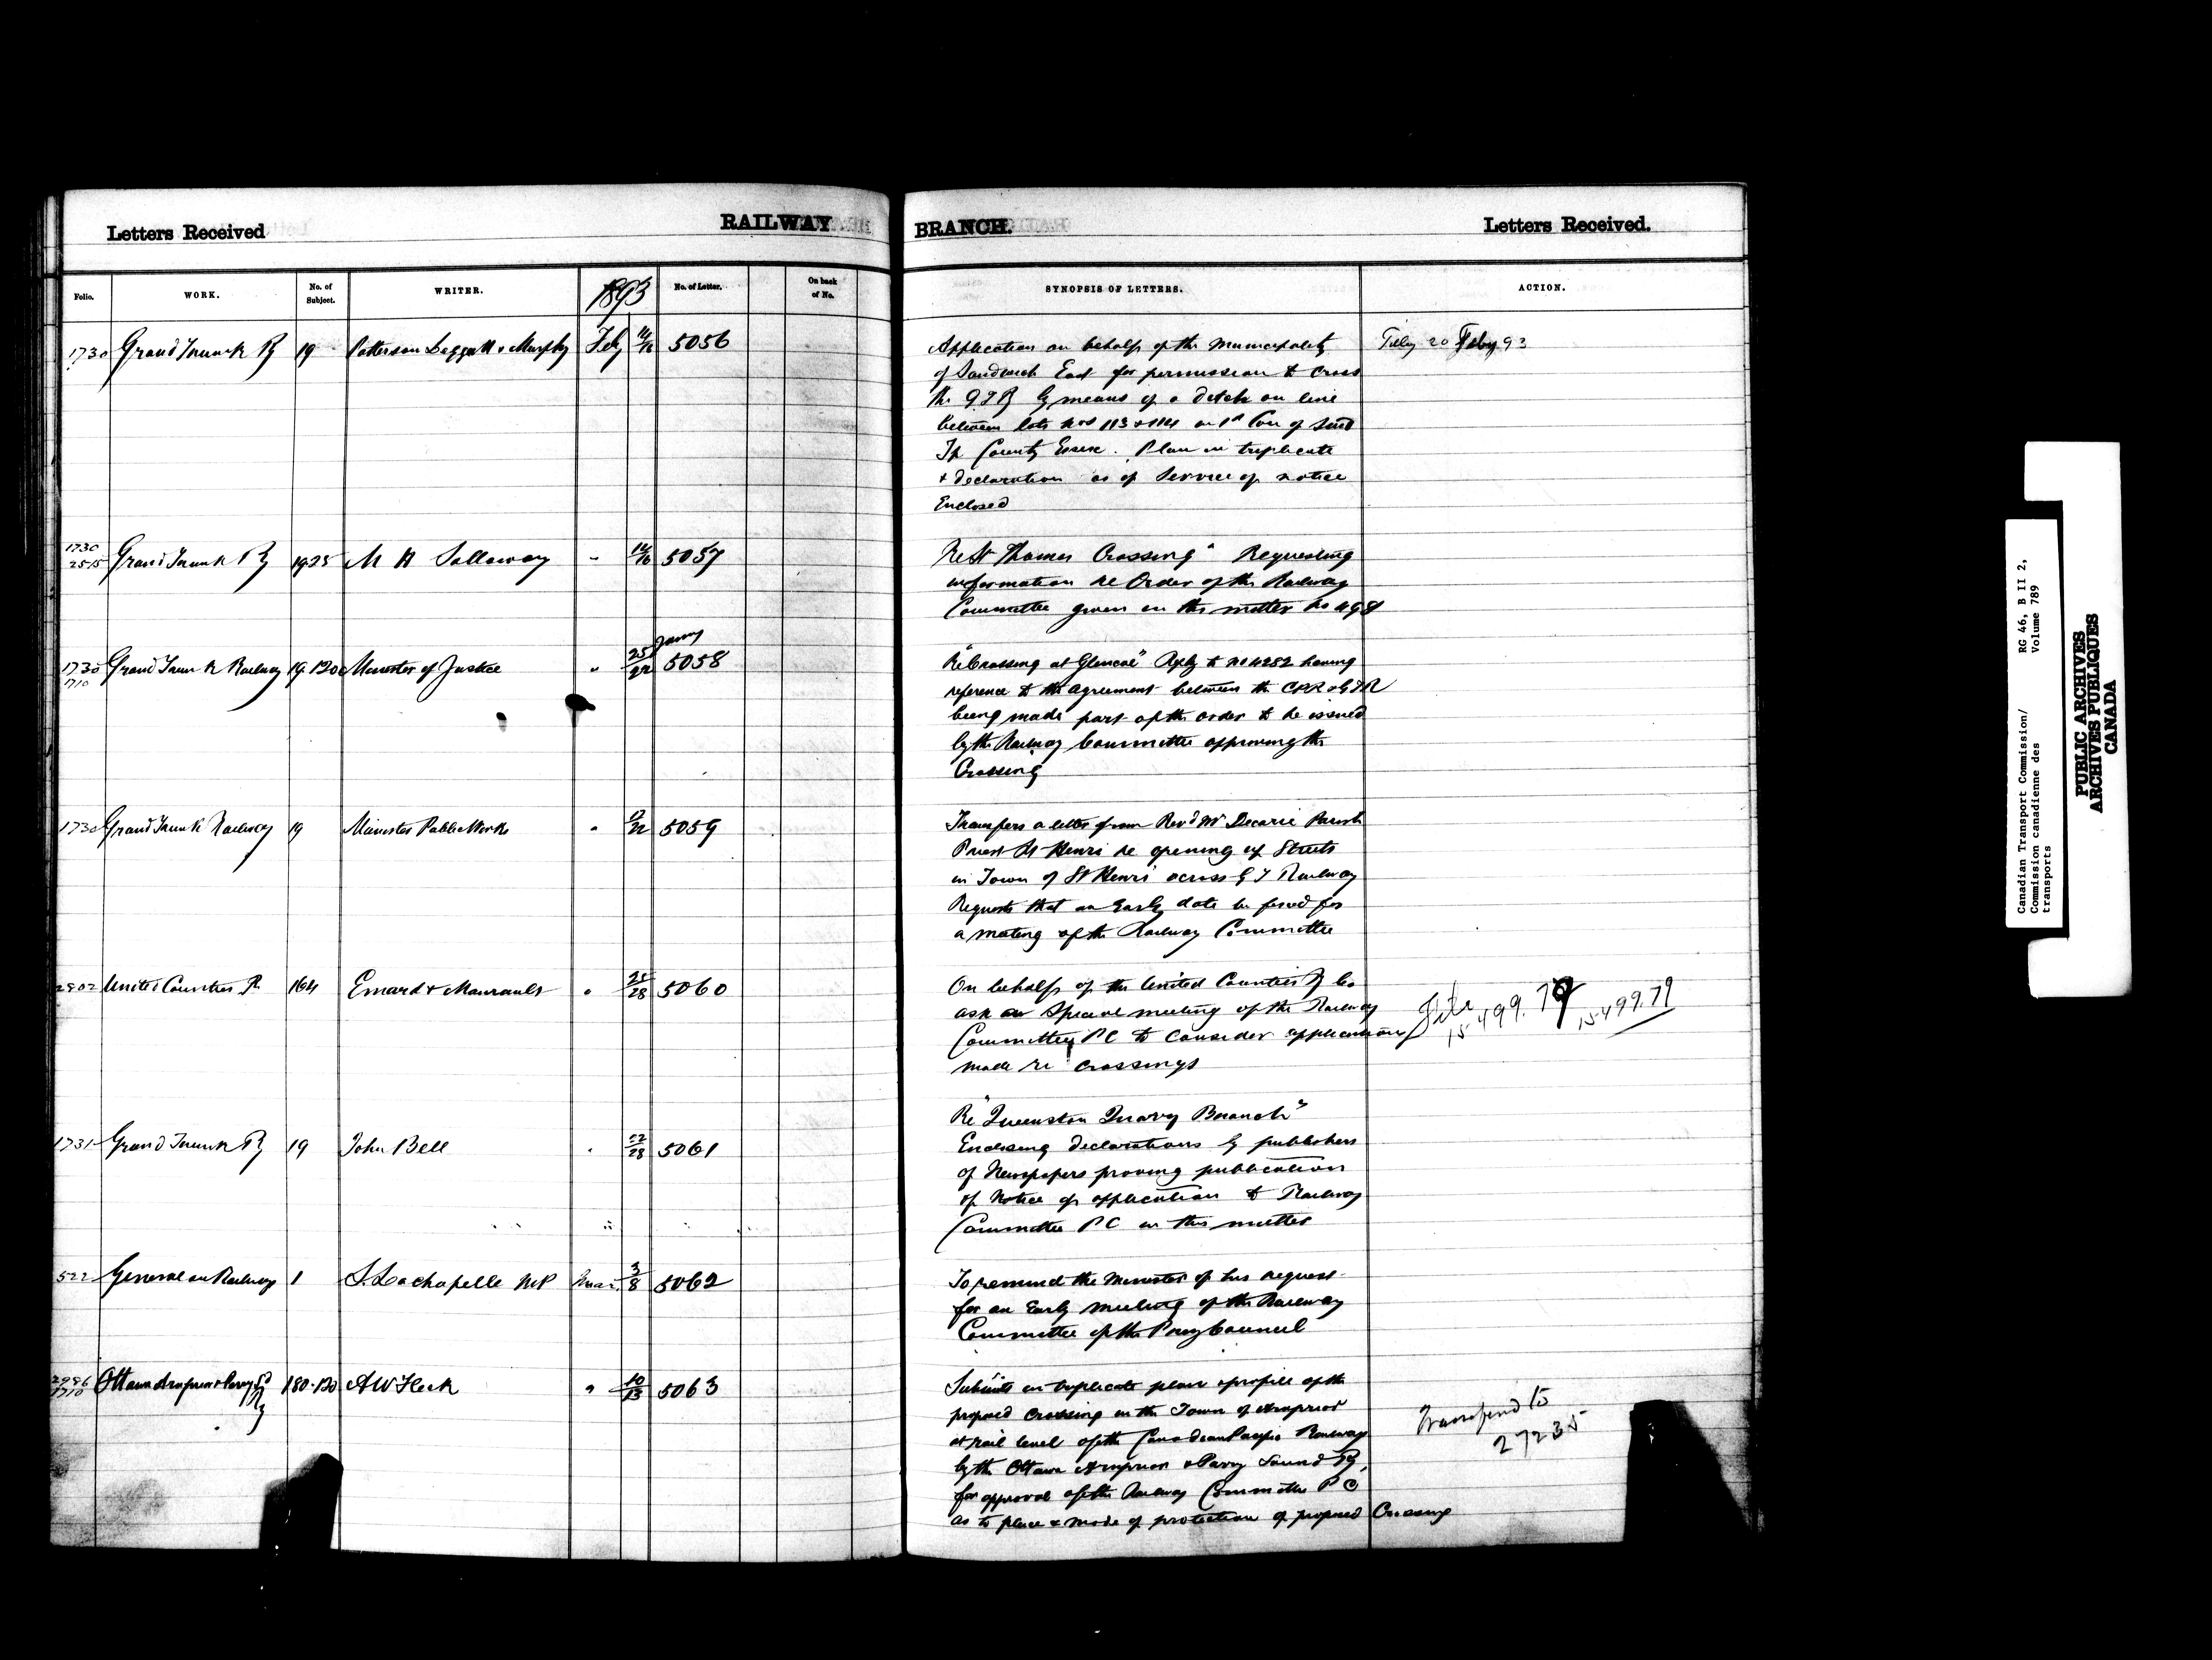 Letters Received
RAILWAY
BRANCH.
Letters Received.
Folio.
WORK.
No. of Subject.
WRITER.
1893
No. of Letter.
On back of No.
SYNOPSIS OF LETTERS.
ACTION.
1730 Grand Trunk Ry 19 Patterson Leggatt & Murphy Feby 14/16 5056
Application on behalf of the Municipality
of Sandwich East for permission to cross
the G T Ry by means of a ditch on line
between lots Nos 113 & 114 on 1st Con of said
Tp County Essex. Plan in triplicate
& declaration as of Service of notice
Enclosed
Tilley 20 Feby 93
1730 2515 Grand Trunk Ry 19 25 M H Solloway " 14/16 5057
Re St Thomas Crossing" Requesting
information re Order of the Railway
Committee given in this matter No 498
1730 1710 Grand Trunk Railway 19 120 Minister of Justice " 25 Janny/22 5058
"Re Crossing at Glencoe" Reply to No 4282 having
reference to the agreement between the CPR & GTR
being made part of the order to be issued
by the Railway Committee approving the
Crossing
1730 Grand Trunk Railway 19 Minister Public Works " 5059
Transfers a letter from Revd Mr Decarie Parish
Priest St Henri re opening of Streets
in Town of St Henri across G T Railway
Requests that an Early date be fixed for
a meeting of the Railway Committee
2802 United Counties Ry 164 Emard & Maurault " 25/28 5060
On behalf of the United Counties Ry Co
ask an Special meeting of the Railway
Committee PC to consider applications
made re crossings
File 15499.79 15499.79
1731 Grand Trunk Ry 19 John Bell " 27/28 5061
Re "Queenston Quarry Branch"
Enclosing declarations by publishers
of Newspapers proving publication
of Notice of application to Railway
Committee PC in this matter
522 General on Railway 1 S. Lachapelle MP Mar. 3/8 5062
To remind the Minister of his request
for an Early meeting of the Railway
Committee of the Privy Council
2996 1710 Ottawa Arnprior & Parry Sd Ry 180-120 A W Fleck " 10/13 5063
Submits in triplicate plan & profile of the
proposed crossing in the Town of Arnprior
at rail level of the Canadian Pacific Railway
by the Ottawa Arnprior & Parry Sound Ry,
for approval of the Railway Committee P C
as to place & mode of protection of proposed Crossing
Transferred to
27235
Canadian Transport Commission/
Commission canadienne des
transports
RG 46, B II 2,
Volume 789
PUBLIC ARCHIVES
ARCHIVES PUBLIQUES
CANADA